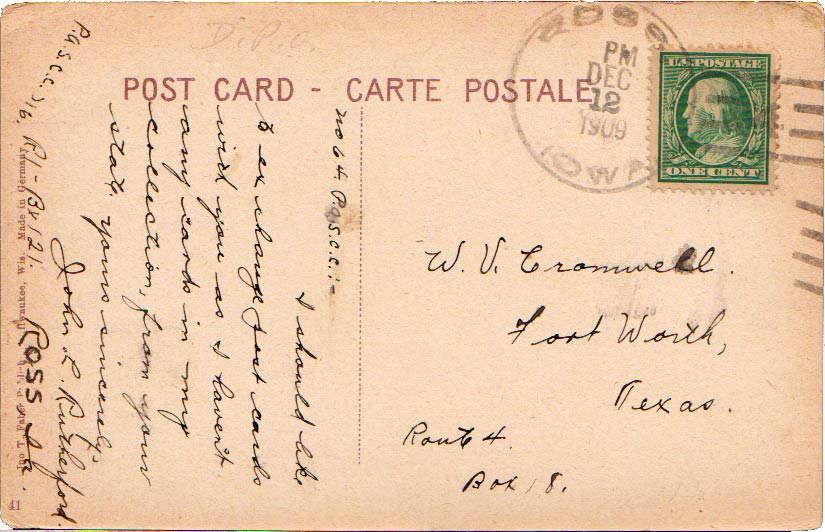 D.P.O.
POST CARD - CARTE POSTALE
ROSS
PM
DEC
12
1909
IOWA
U.S. POSTAGE
ONE CENT
No 64. P.a.S.C.C.:-
I should like
to exchange post cards
with you as I havent
any cards in my
collection, from your
state, yours sincerely.
John. L. Rutherford.
Ross Ia.
R1 - Bx 121.
P.a.S.C.C. 
W. V. Cromwell.
Fort Worth,
Texas.
Route 4.
Box 18.
Milwaukee, Wis. Made in Germany
41